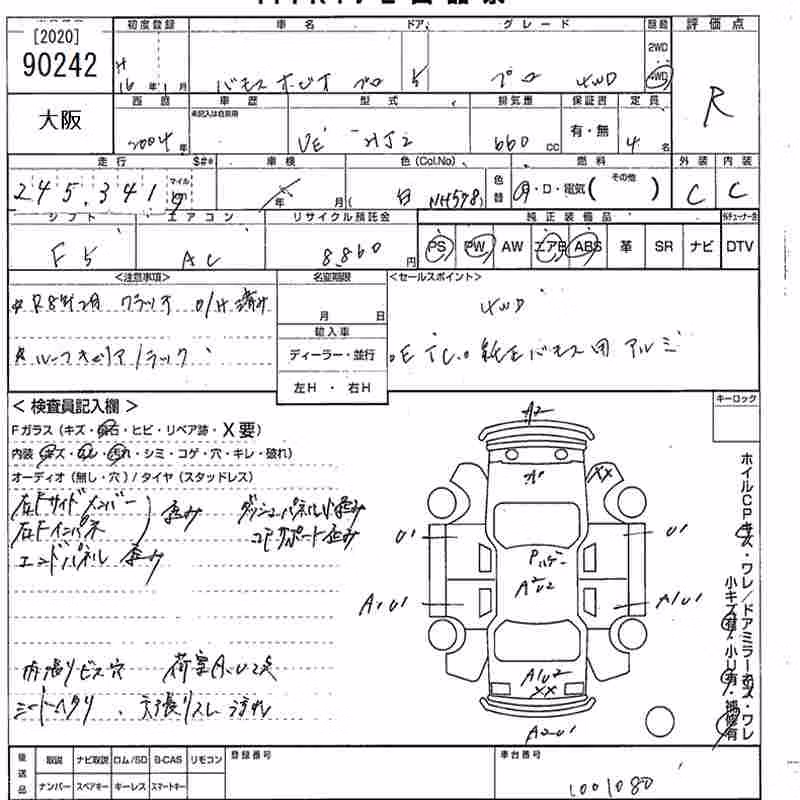 [2020]
90242
大阪
初度登録
車名
ドア
グレード
評価点
H 16年1月
バモス ホビオ プロ
5
プロ 4WD
2WD
4WD
R
車歴
型式
排気量
保証書
定員
2004年
未記入は自家用
HJ2
660 cc
有・無
4名
走行
$#*
車検
色(Col.No)
色替
燃料
外装
内装
245,341
マイル
年 月
白 NH578
・D・電気( その他 )
C
C
シフト
エアコン
リサイクル預託金
純正装備品
F5
AC
8,860円
PS
PW
AW
エアB
ABS
革
SR
ナビ
DTV
<注意事項>
名変期限
<セールスポイント>
クラッチ O/H 済み
月 日
4WD
輸入車
ルーフキャリア/ラック
ディーラー・並行
ETC 純正バモス用 アルミ
左H・右H
<検査員記入欄>
キーロック
Fガラス(キズ・飛石・ヒビ・リペア跡・X要)
内装(キズ・ ・汚れ・シミ・コゲ・穴・キレ・破れ)
オーディオ(無し・穴)/タイヤ(スタッドレス)
右Fサイドメンバー
右Fインパネ
歪み
ダッシュパネル小歪み
コアサポート歪み
エンドパネル 歪み
内張りビス穴
荷室A.U2点
シートヘタリ、天張りスレ 汚れ
A2
XX
U1
U1
A1U1
A1U1
A2U2
A1U2
XX
A2U1
ホイルCPキズ・ワレ/ドアミラーキズ・ワレ
小キズ有・小U有・補修有
後送品
取説
ナビ取説
ロム/SD
B-CAS
リモコン
登録番号
車台番号
ナンバー
スペアキー
キーレス
スマートキー
1001080